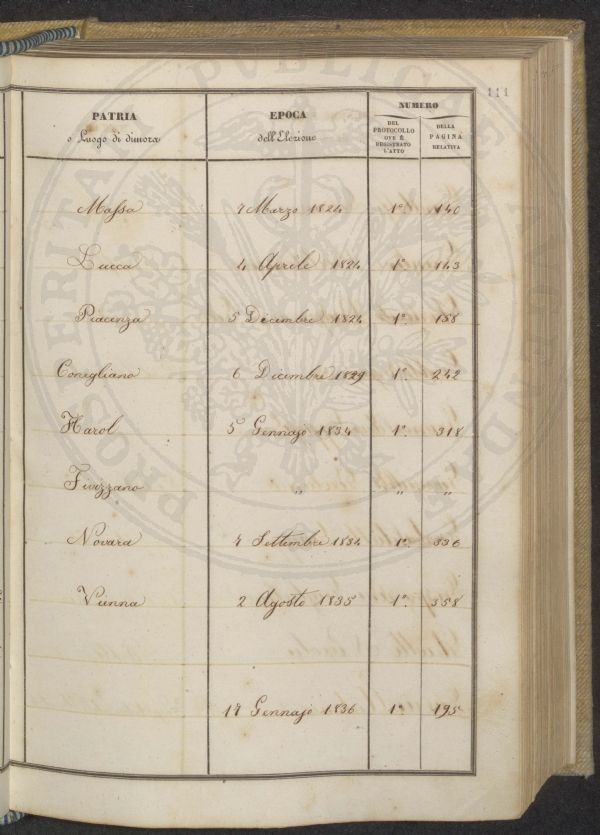 PROSPERITATI PUBLICAE AUGENDAE
111
PATRIA
o Luogo di dimora
EPOCA
dell'Elezione
NUMERO
DEL
PROTOCOLLO
OVE È
REGISTRATO
L'ATTO
DELLA
PAGINA
RELATIVA
Massa 7 Marzo 1824 1°. 140
Lucca 4 Aprile 1824 1°. 143
Piacenza 5 Decembre 1824 1°. 158
Conegliano 6 Dicembre 1829 1°. 242
Harol 5 Gennajo 1834 1°. 318
Fivizzano " " "
Novara 7 Settembre 1834 1°. 336
Vienna 2 Agosto 1835 1°. 358
17 Gennajo 1836 1°. 195